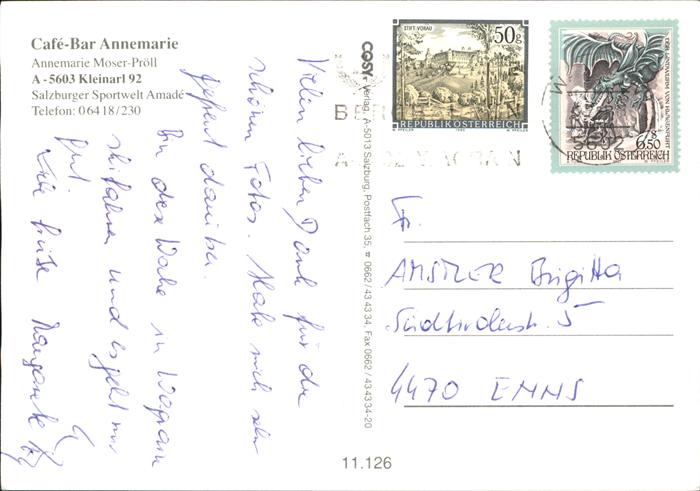 Café-Bar Annemarie
Annemarie Moser-Pröll
A - 5603 Kleinarl 92
Salzburger Sportwelt Amadé
Telefon: 0 64 18 / 230
Vielen lieben Dank für die
schönen Fotos. Habe mich sehr
gefreut darüber.
Bin diese Woche in Wagrain
skifahren und es geht mir
gut.
Viele Grüße Margarete
COSY Verlag, A-5013 Salzburg, Postfach 35, ☎ 0662/43 43 34, Fax 0662/43 43 34-20
STIFT VORAU
50g
REPUBLIK ÖSTERREICH
REPUBLIK ÖSTERREICH
6.50
Fr.
AMSTLER Brigitta
Südtirolerstr. 5
4470 ENNS
11.126